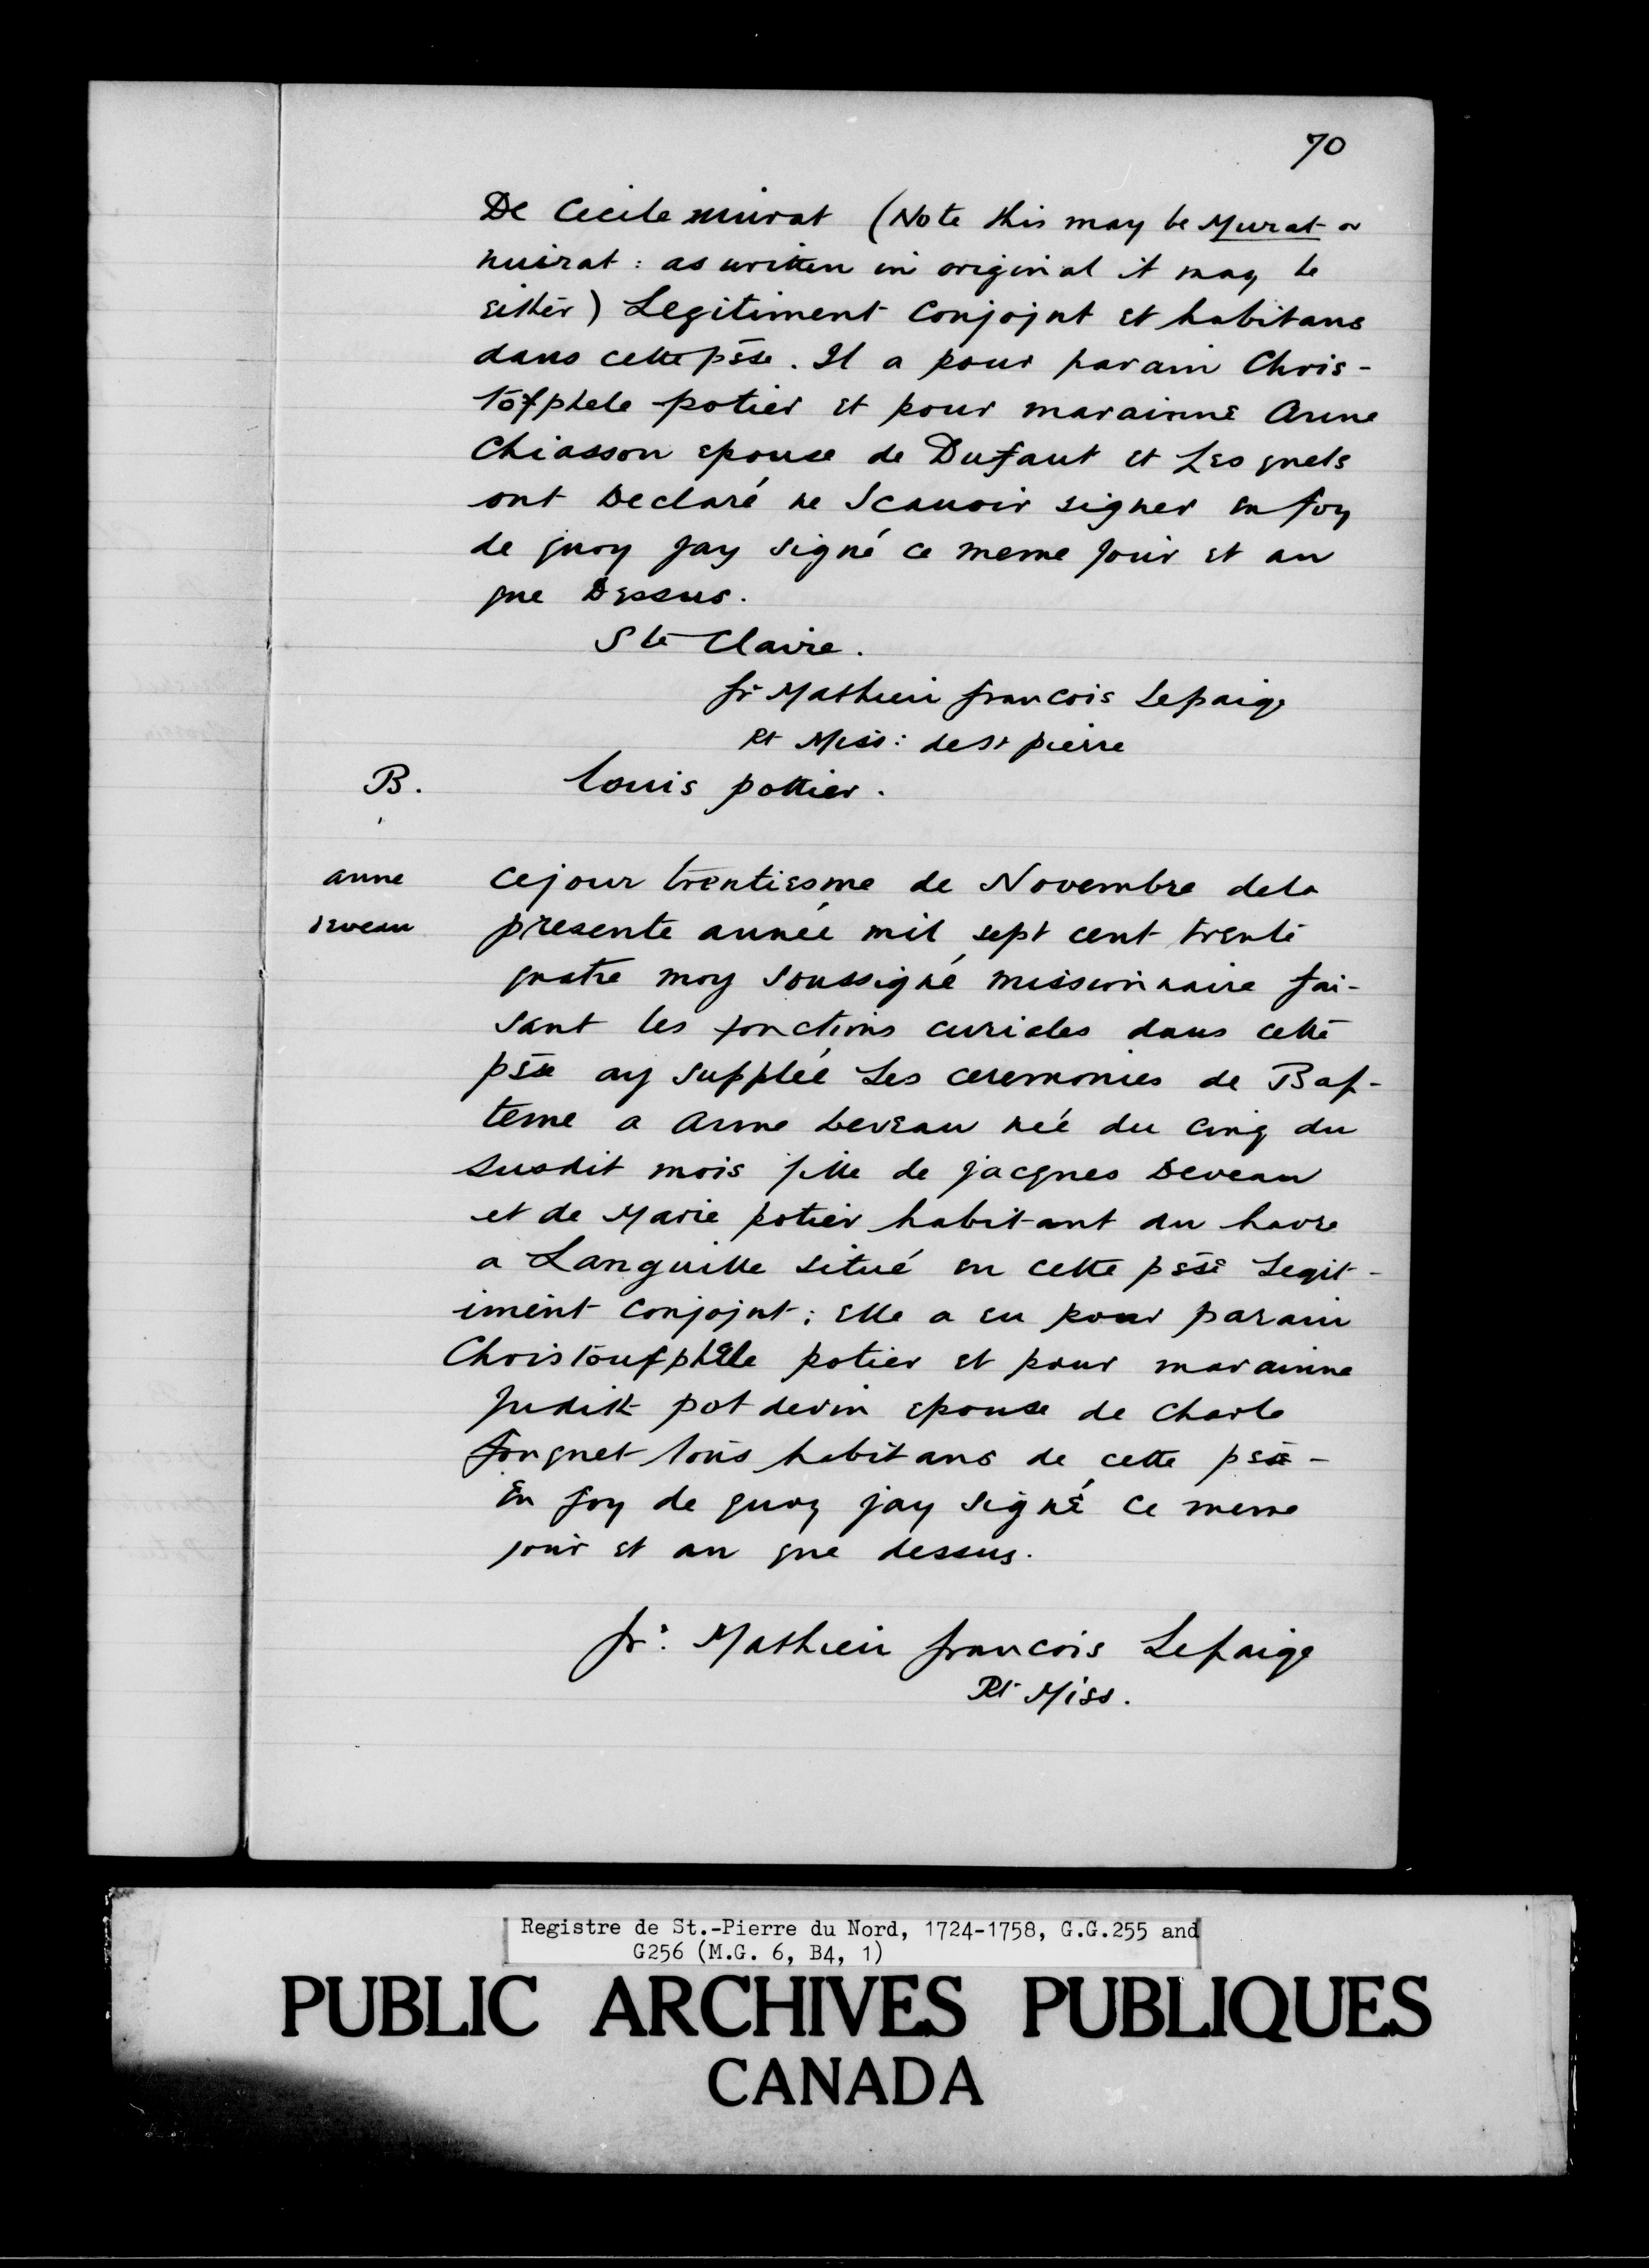 70
De Cecile muirat (Note this may be Murat or
nuirat : as written in original it may be
either) Legitiment Conjojnt et habitans
dans cette psse. Il a pour parain Chris-
tofphele potier et pour marainne Anne
Chiasson epouse de Dufaut et Lesquels
ont Declaré ne Scauoir signer en foy
de quoy jay signé ce meme jour et an
que Dessus.
Ste Claire.
fr Mathieu francois Lepaige
Rt Miss: de St pierre
B. louis pottier.
anne cejour trentiesme de Novembre dela
deveau presente année mil sept cent trente
quatre moy soussigné missionnaire fai-
sant les fonctions curiales dans cette
psse ay supplée Les ceremonies de Bap-
teme a Anne deveau née du cinq du
susdit mois fille de jacques Deveau
et de Marie potier habitant au havre
a Languille situé en cette psse Legit-
iment conjojnt; elle a eu pour parain
Christoufphele potier et pour marainne
Judith pot devin epouse de Charle
fouquet tous habitans de cette psse -
En foy de quoy jay signé ce meme
jour et an que dessus.
fr: Mathieu francois Lepaige
Rt Miss.
Registre de St.-Pierre du Nord, 1724-1758, G.G.255 and
G256 (M.G. 6, B4, 1)
PUBLIC ARCHIVES PUBLIQUES
CANADA